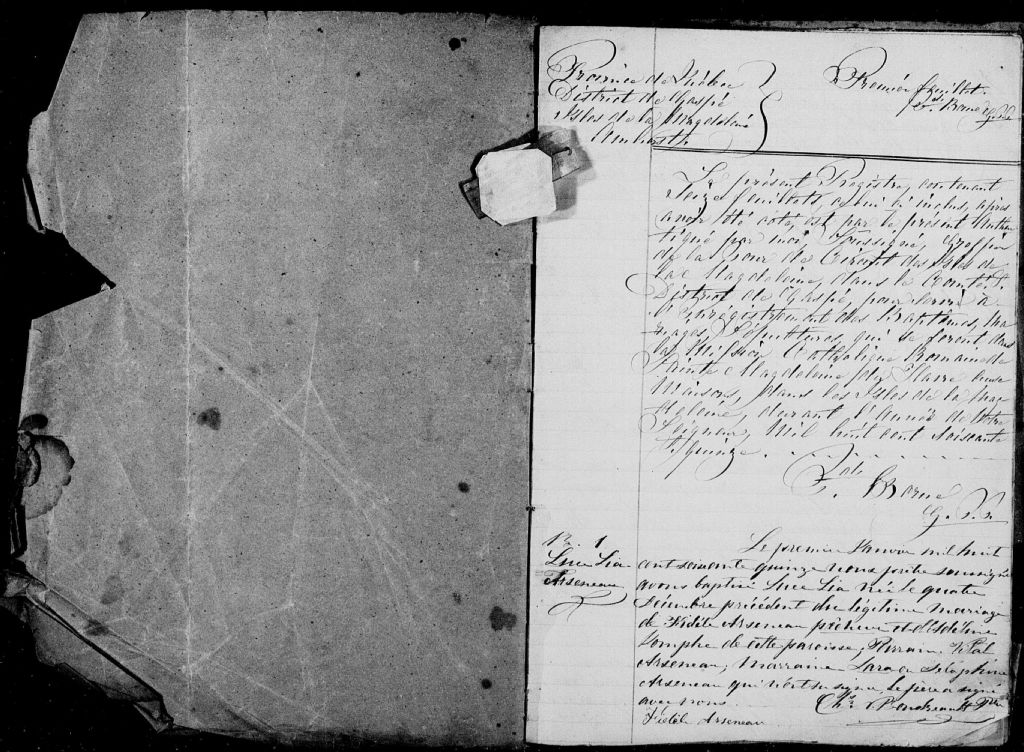 Province de Québec
District de Gaspé
Isles de la Magdeleine
Amherst
Premier feuillet.
F. Borne G.C.C.
Le présent Registre, contenant
Seize feuillets, celui ci inclus, après
avoir été coté, est par le présent Authen
tiqué par moi, Soussigné, Greffier
de la Cour de Circuit des Isles de
la Magdeleine, dans le Comté &
District de Gaspé, pour servir à
l'Enrégistrement des Baptêmes, Ma
riages & Sépultures, qui se feront dans
la Mission Catholique Romaine de
Sainte Magdeleine du Havre aux
Maisons, dans les Isles de la Mag
deleine, durant l'Année de Notre
Seigneur, Mil huit cent soixante
& quinze.
F. Borne
G.C.C.
B. 1
Luce Lia
Arseneau
Le premier Janvier mil huit
cent soixante quinze nous prêtre soussigné
avons baptisé Luce Lia née le quatre
Décembre précédent du légitime mariage
de Fidèle Arseneau pêcheur et d'
de cette paroisse. Parrain, Vital
Arseneau, marraine Sara Séraphine
Arseneau qui n'ont su signer le père a signé
avec nous.
Chs Boudreault Ptre
Fidèle Arseneau